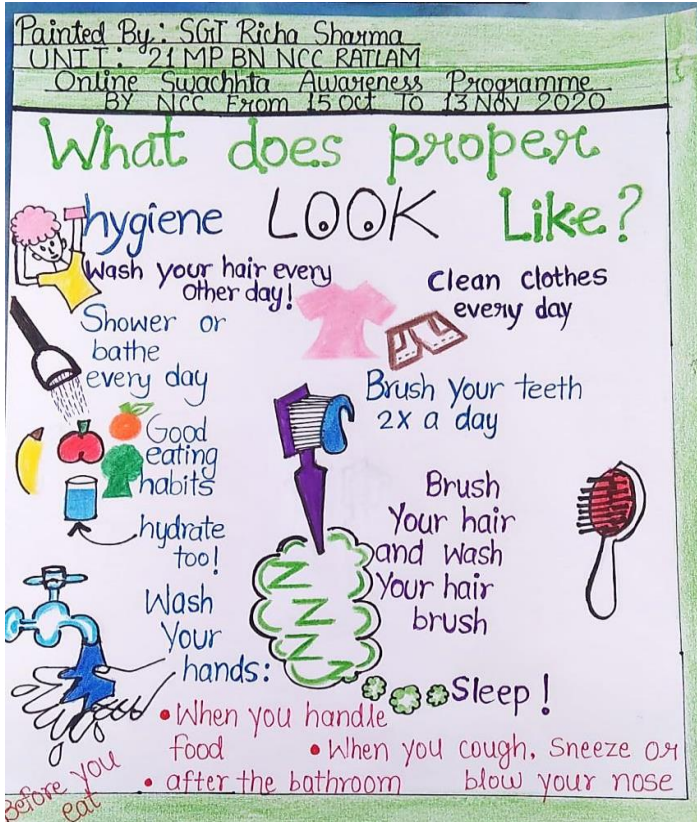 Painted By: SGT Richa Sharma
UNIT: 21 MP BN NCC RATLAM
Online Swachhta Awareness Programme
BY NCC From 15 Oct To 13 Nov 2020
What does proper
hygiene LOOK Like?
Wash your hair every
other day!
Clean clothes
every day
Shower or
bathe
every day
Brush Your teeth
2x a day
Good
eating
habits
hydrate
too!
Brush
Your hair
and wash
Your hair
brush
Wash
Your
hands:
Z
Z
Z
Z
Z
Z
Sleep!
• When you handle
food
• When you cough, Sneeze or
blow your nose
• after the bathroom
Before you
eat